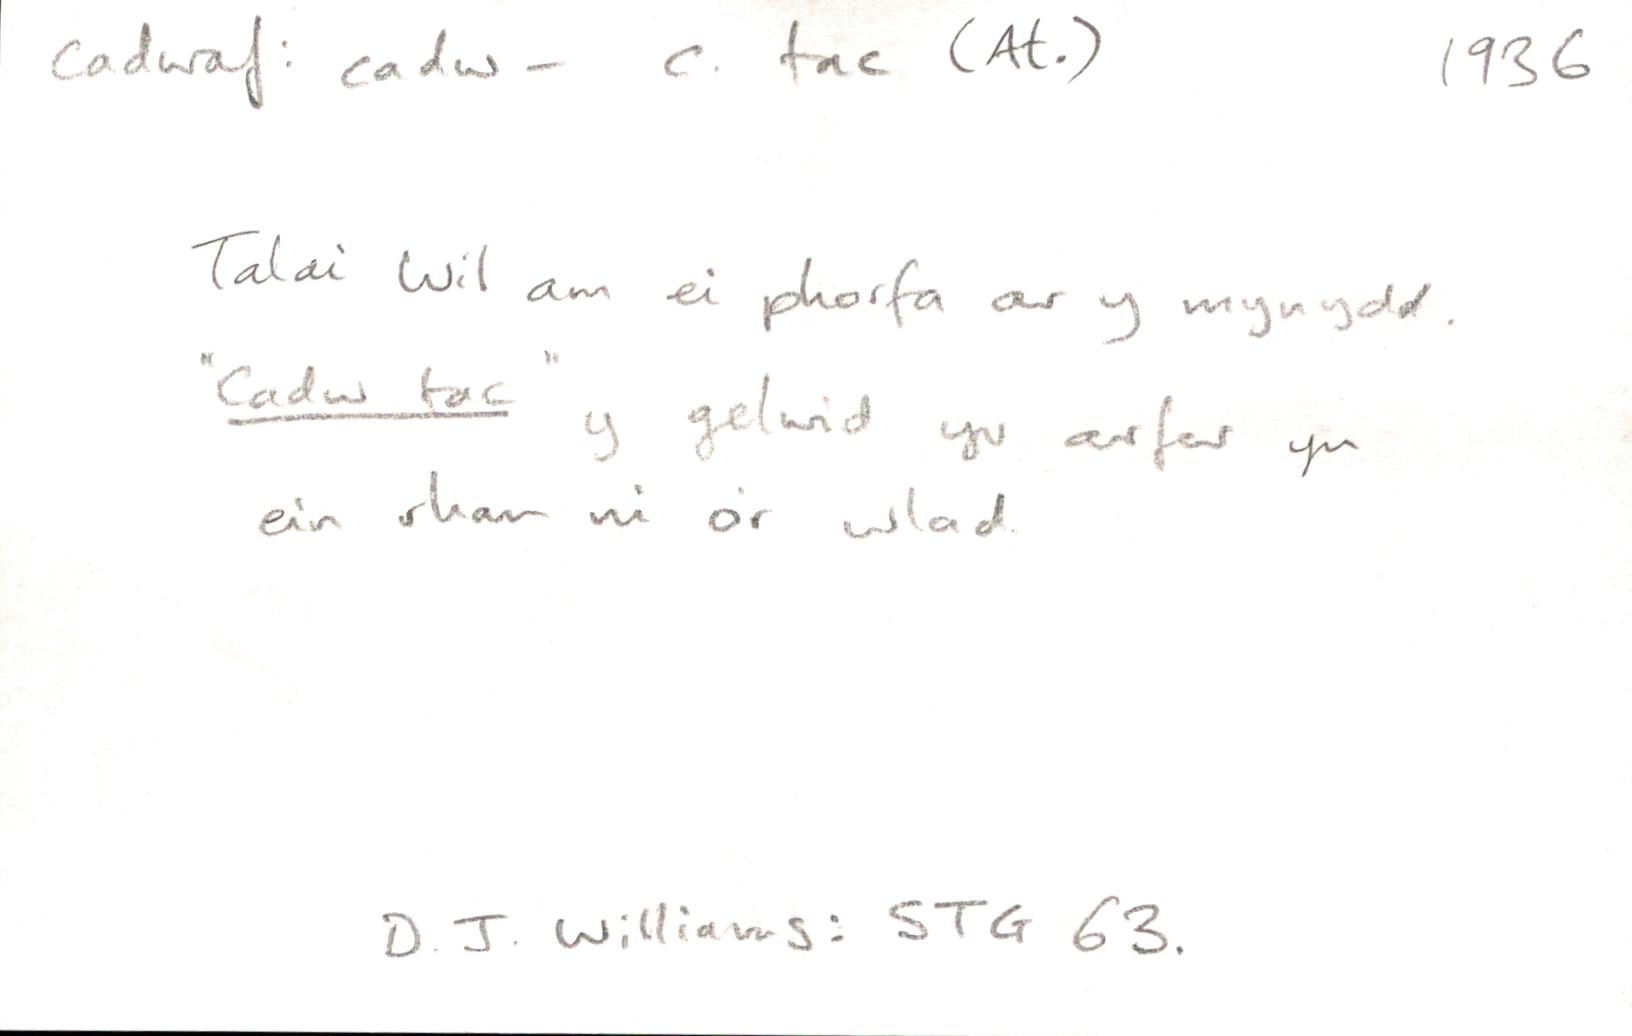 cadwaf: cadw – c. tac (At.) 1936
Talai Wil am ei phorfa ar y mynydd.
"Cadw tac" y gelwid yr arfer yn
ein rhan ni o'r wlad.
D. J. Williams: STG 63.